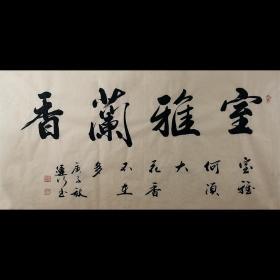 室雅蘭香
室雅
何須
大
花香
不在
多
庚子秋
书